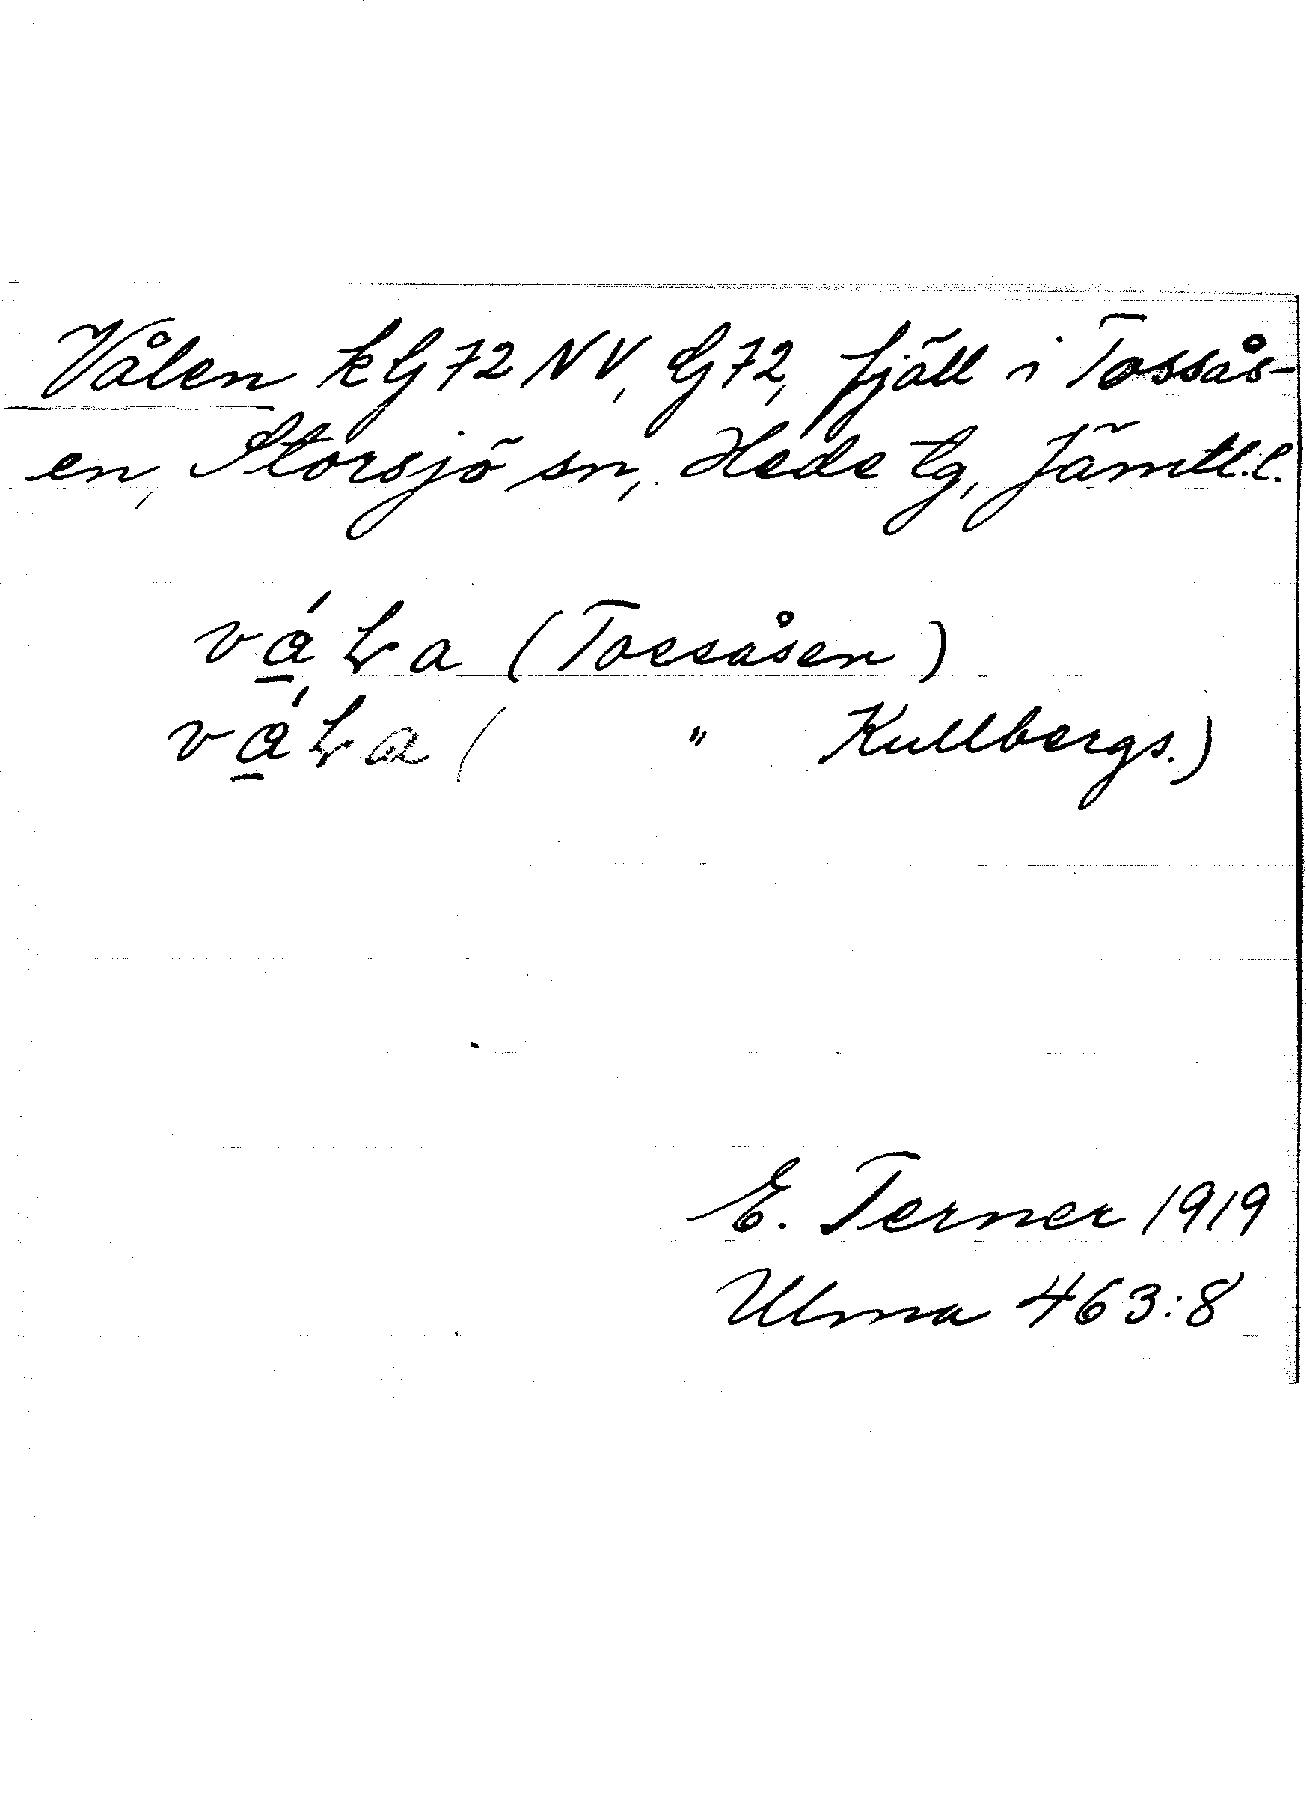 Vålen kG72NV, G72, fjäll i Tossås-
en, Storsjö sn, Hede tg, Jämtl.l.
(Tossåsen)
( " Kullbergs.)
E. Terner 1919
Ulma 463:8